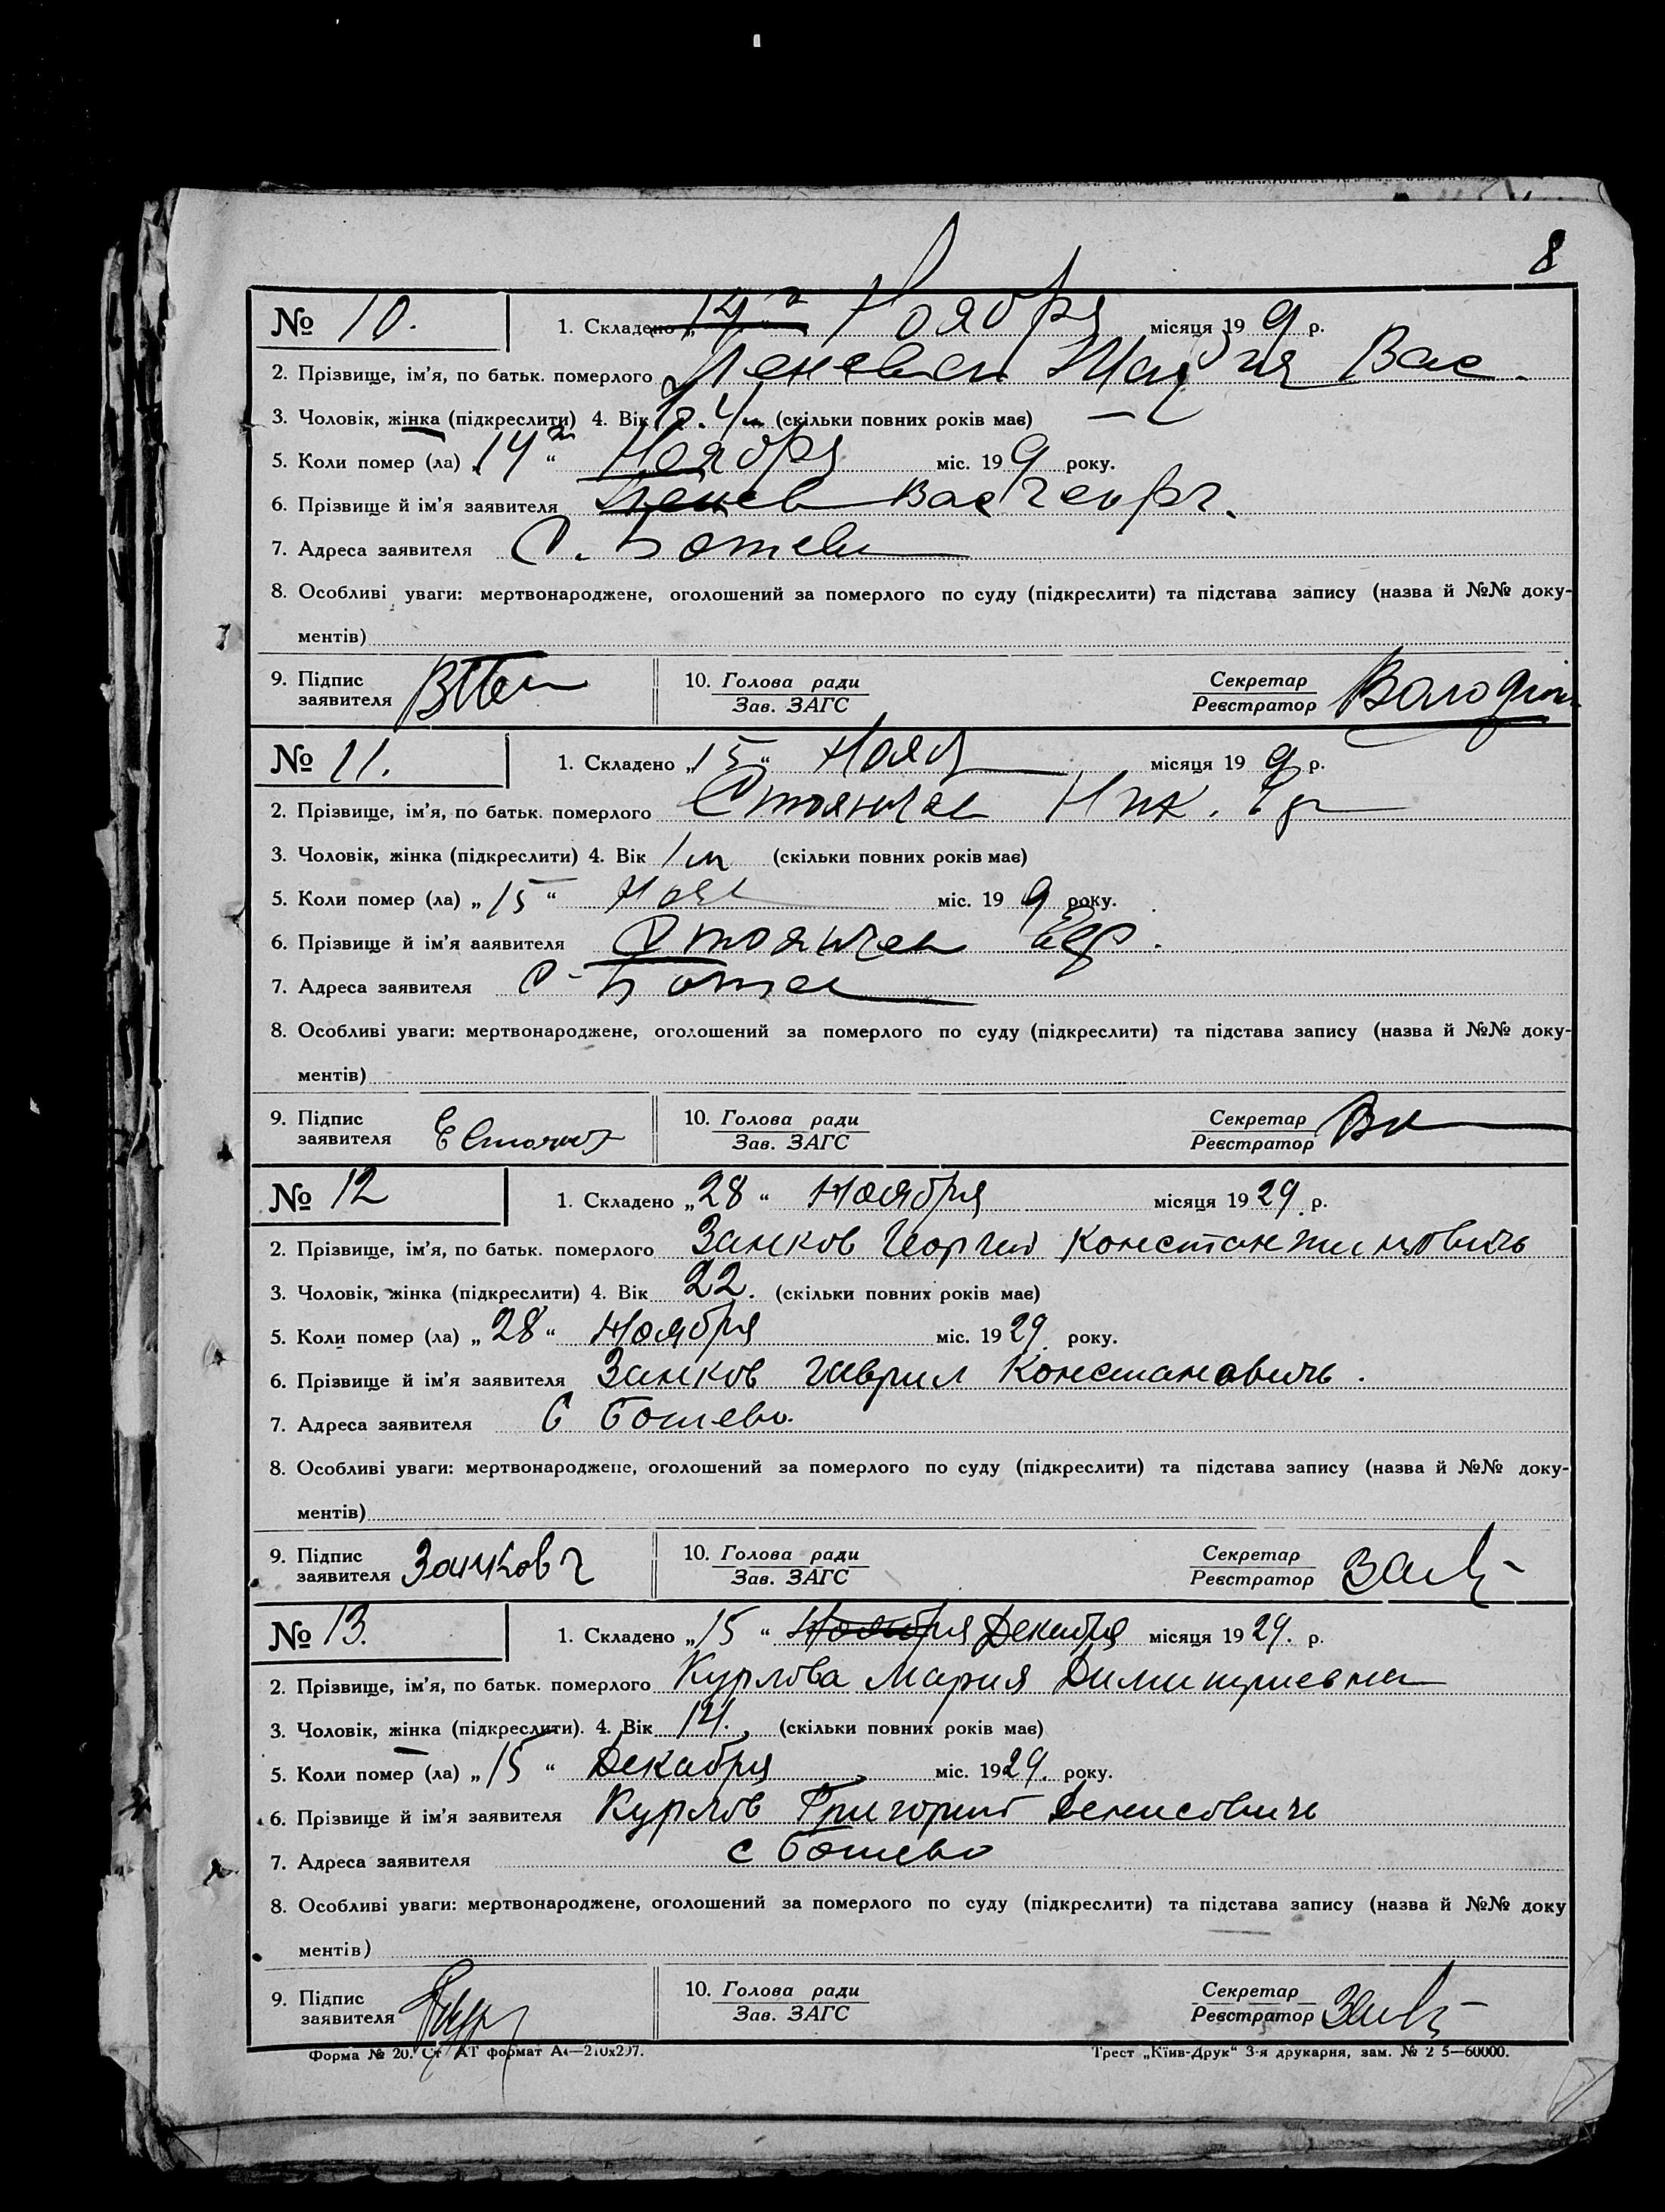 8
№ 10. 1. Складено „14 Ноября місяця 19 9 р.
2. Прізвище, ім'я, по батьк. померлого Вас.
3. Чоловік, жінка (підкреслити) 4. Вік (скільки повних років має) —
5. Коли помер (ла) „14“ Ноября міс. 19 9 року.
6. Прізвище й ім'я заявителя Вас Георг.
7. Адреса заявителя С. Ботево
8. Особливі уваги: мертвонароджене, оголошений за померлого по суду (підкреслити) та підстава запису (назва й №№ доку-
ментів)
9. Підпис заявителя 10. Голова ради Зав. ЗАГС Секретар Реєстратор
№ 11. 1. Складено „15“ Нояб місяця 19 9 р.
2. Прізвище, ім'я, по батьк. померлого Ник.
3. Чоловік, жінка (підкреслити) 4. Вік 1 м (скільки повних років має)
5. Коли помер (ла) „15“ Нояб міс. 19 9 року.
6. Прізвище й ім'я заявителя
7. Адреса заявителя С. Ботево
8. Особливі уваги: мертвонароджене, оголошений за померлого по суду (підкреслити) та підстава запису (назва й №№ доку-
ментів)
9. Підпис заявителя 10. Голова ради Зав. ЗАГС Секретар Реєстратор
№ 12 1. Складено „28“ Ноября місяця 19 29 р.
2. Прізвище, ім'я, по батьк. померлого Занков Георгий Константинович
3. Чоловік, жінка (підкреслити) 4. Вік 22. (скільки повних років має)
5. Коли помер (ла) „28“ Ноября міс. 19 29 року.
6. Прізвище й ім'я заявителя Занков Гаврил Констановичь.
7. Адреса заявителя С Ботево.
8. Особливі уваги: мертвонароджене, оголошений за померлого по суду (підкреслити) та підстава запису (назва й №№ доку-
ментів)
9. Підпис заявителя Занков Г 10. Голова ради Зав. ЗАГС Секретар Реєстратор
№ 13. 1. Складено „15“ Ноября Декабря місяця 19 29. р.
2. Прізвище, ім'я, по батьк. померлого Курлова Мария Димитриевна
3. Чоловік, жінка (підкреслити). 4. Вік 14. (скільки повних років має)
5. Коли помер (ла) „15“ Декабря міс. 19 29. року.
6. Прізвище й ім'я заявителя Курлов Григорий Денисовичь
7. Адреса заявителя с Ботево
8. Особливі уваги: мертвонароджене, оголошений за померлого по суду (підкреслити) та підстава запису (назва й №№ доку
ментів)
9. Підпис заявителя 10. Голова ради Зав. ЗАГС Секретар Реєстратор
Форма № 20. Ст АТ формат А4—210х297. Трест „Київ-Друк“ 3-я друкарня, зам. № 2 5—60000.